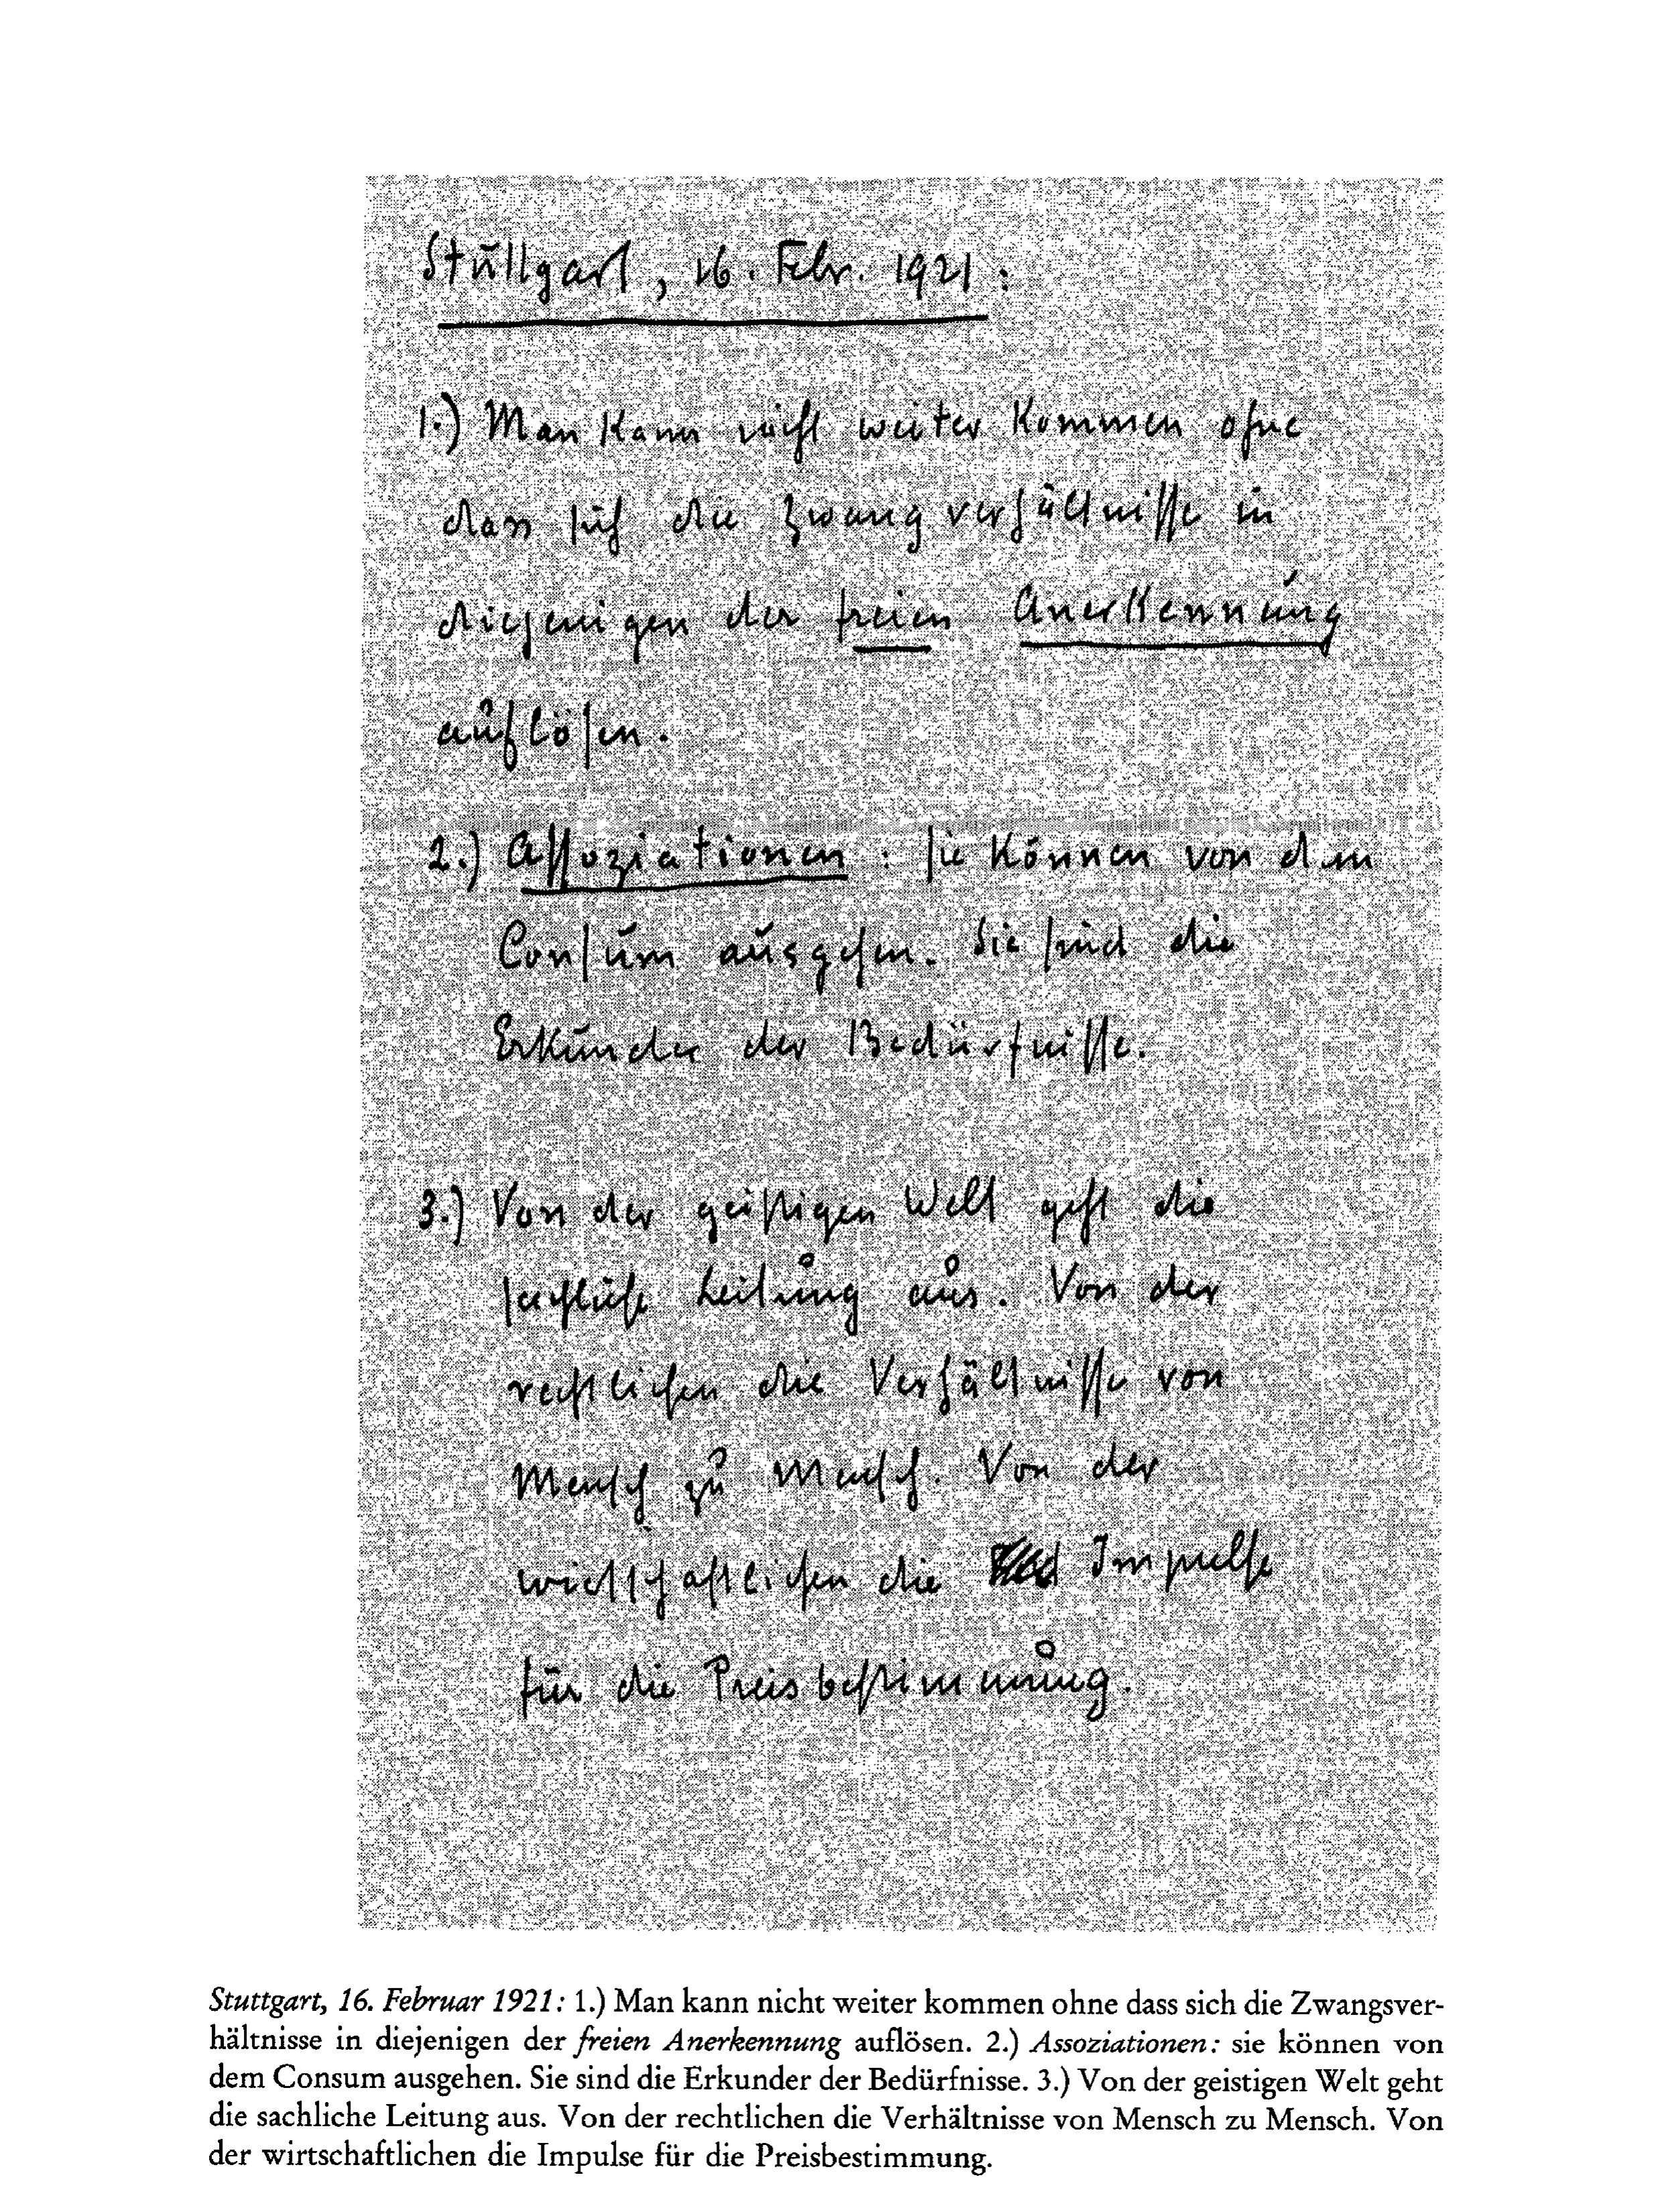 Stuttgart, 16. Febr. 1921:
1.) Man kann nicht weiter kommen ohne
dass sich die Zwangverhältnisse in
diejenigen der freien Anerkennung
auflösen.
2.) Assoziationen: sie können von dem
Consum ausgehen. Sie sind die
Erkunder der Bedürfnisse.
3.) Von der geistigen Welt geht die
sachliche Leitung aus. Von der
rechtlichen die Verhältnisse von
Mensch zu Mensch. Von der
wirtschaftlichen die Impulse
für die Preisbestimmung.
Stuttgart, 16. Februar 1921: 1.) Man kann nicht weiter kommen ohne dass sich die Zwangsver-
hältnisse in diejenigen der freien Anerkennung auflösen. 2.) Assoziationen: sie können von
dem Consum ausgehen. Sie sind die Erkunder der Bedürfnisse. 3.) Von der geistigen Welt geht
die sachliche Leitung aus. Von der rechtlichen die Verhältnisse von Mensch zu Mensch. Von
der wirtschaftlichen die Impulse für die Preisbestimmung.